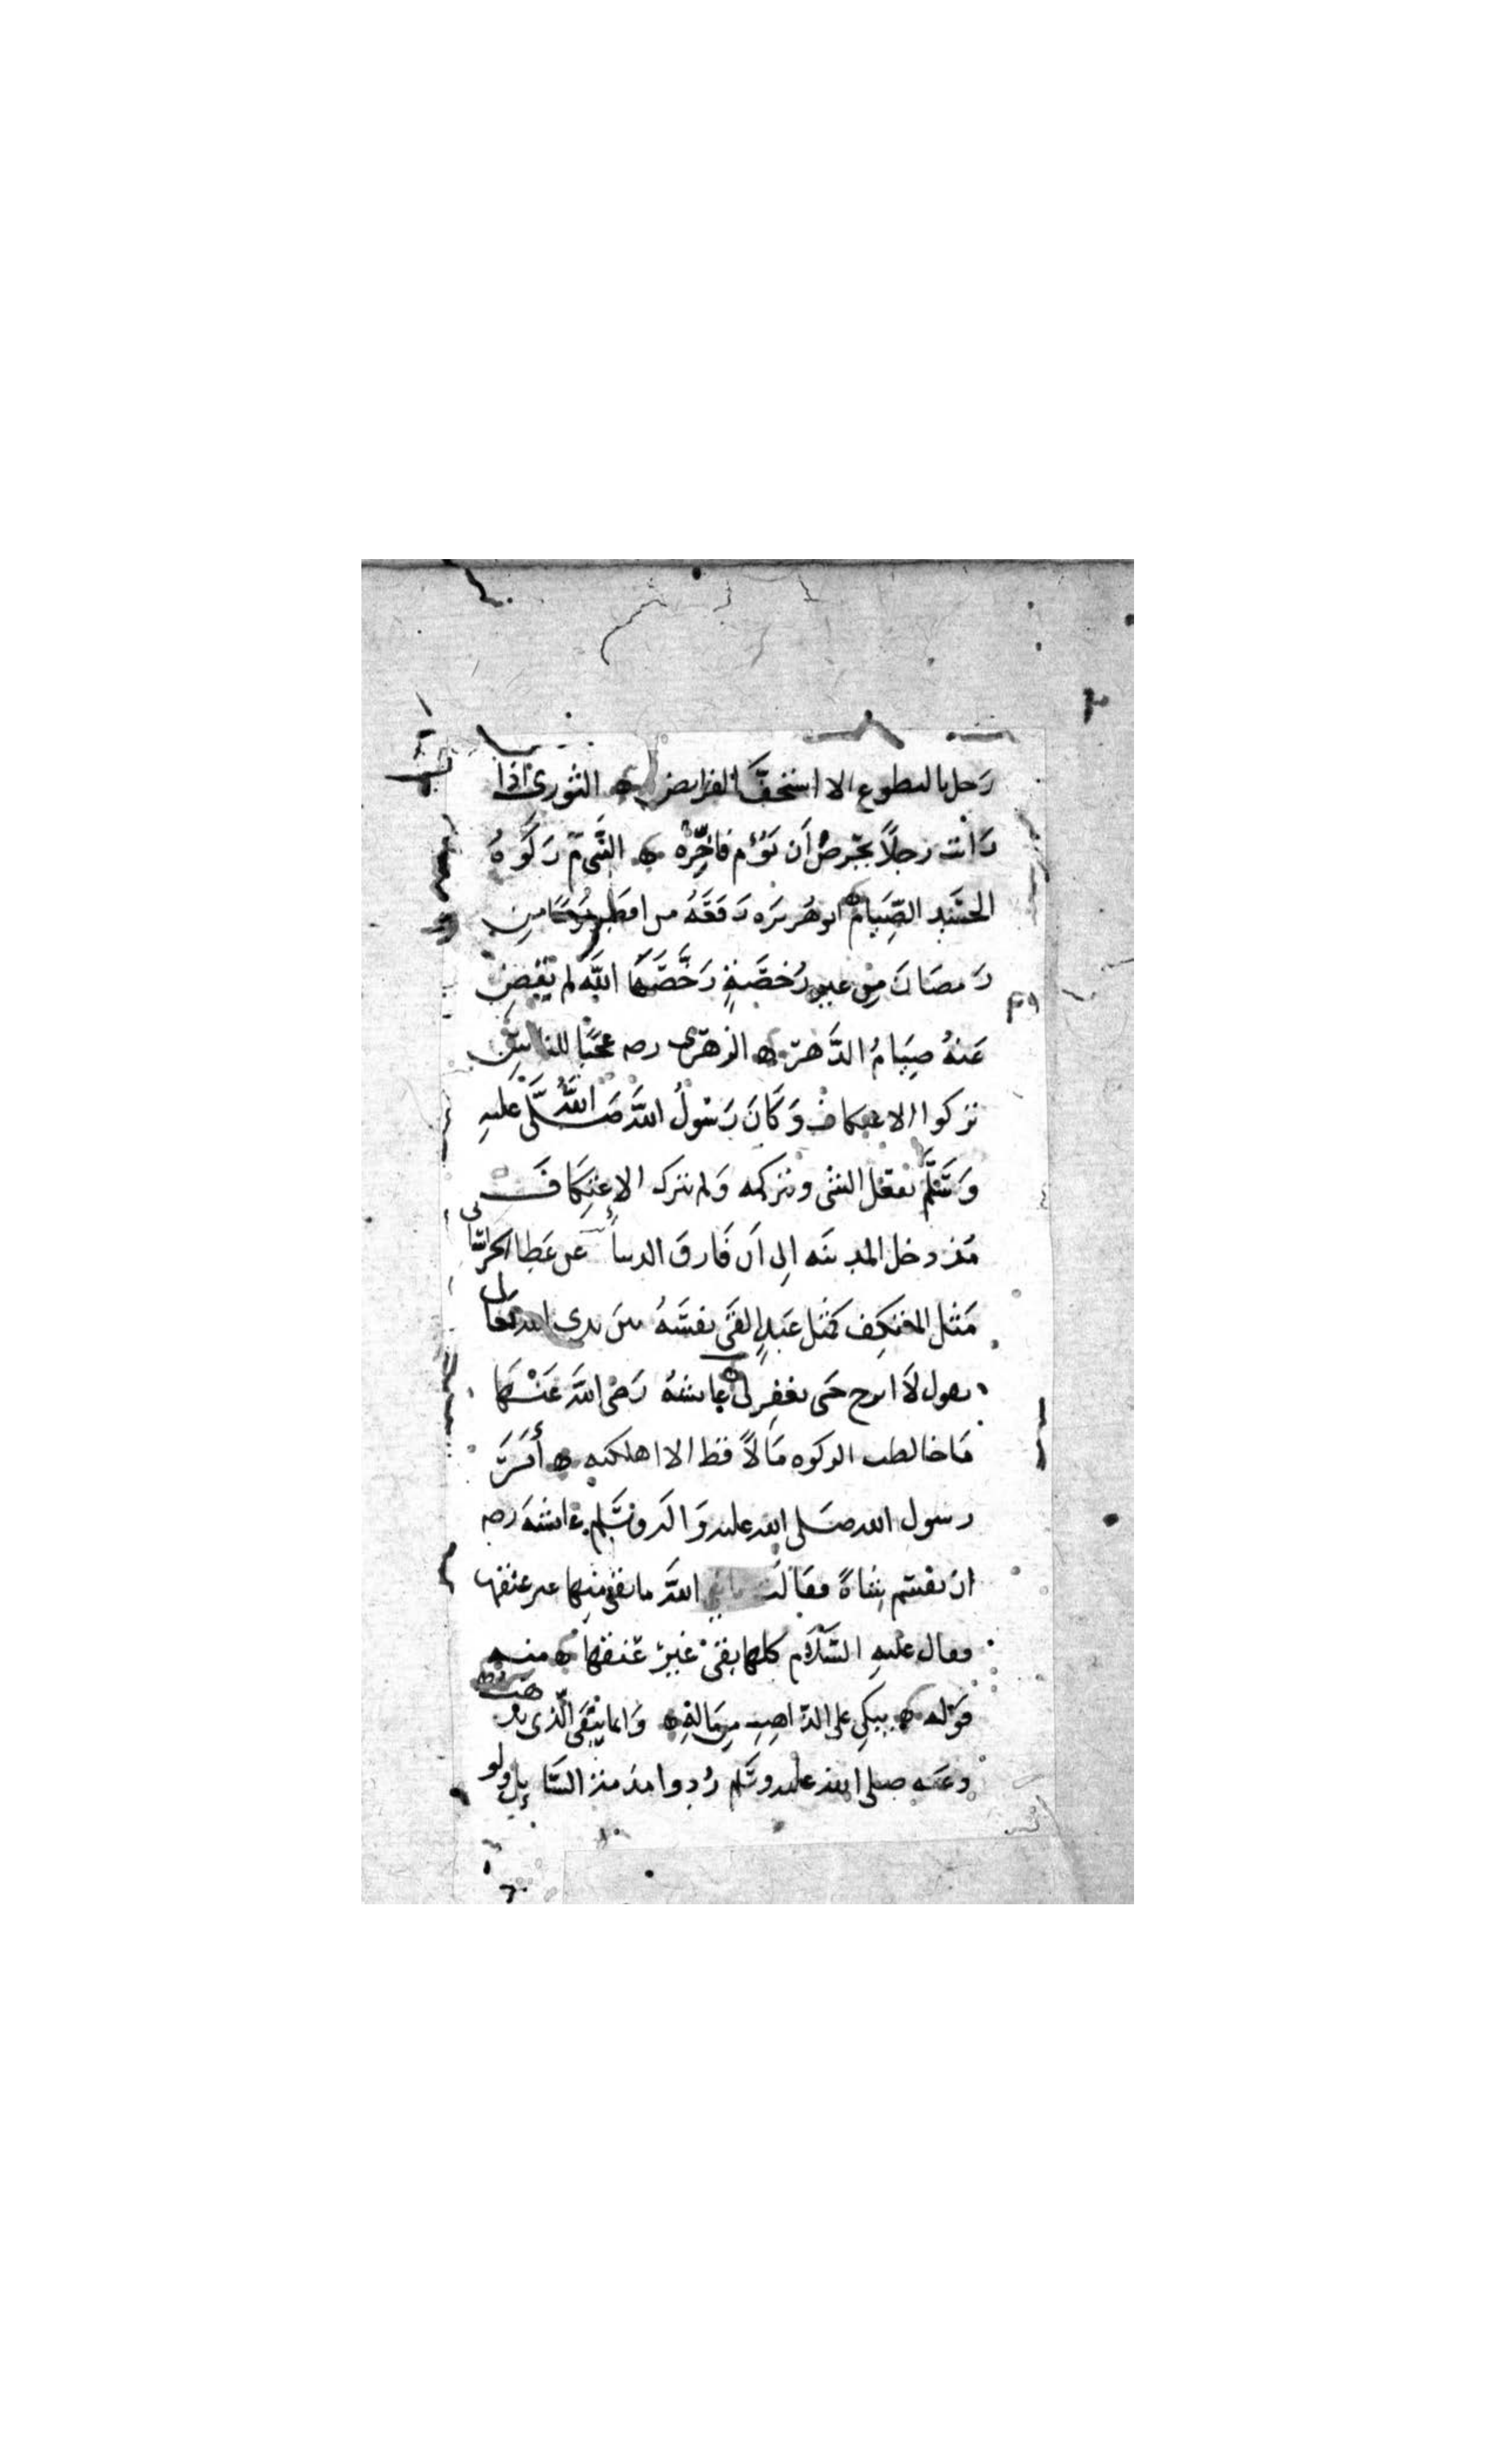 رجل بالتطوع الا استخف بالفرايض ه الثوري اذا
رايت رجلاً يحرص أن يؤم فاخّره ه النبي م زكوة
الجسد الصيام ه ابو هريره رفعه من افطر يوما من
رمضان من غير رخصةٍ رخّصها الله لم يقض
عنه صيام الدهر ه الزهري رصه عجبًا للناس
تركوا الاعتكاف وكان رسول الله صلى الله عليه
وسلّم يفعل الشي ويتركه ولم يترك الاعتكاف
مذ دخل المدينه إلى أن فارق الدنيا عن عطا الخراساني
مثل المعتكف كمثل عبدٍ القى نفسه بين يدي الله تعالى
يقول لا ابرح حتى يغفر لي ه عايشه رضي الله عنها
ما خالطت الزكوه مالاً قط الا اهلكته ه أمر
رسول الله صلى الله عليه وآله وسلّم عايشه رصه
ان تقسم شاةً فقالت يا نبي الله ما بقي منها غير عنقها
فقال عليه السلام كلها بقي غير عنقها ه منه
قوله ه يبكي على الذاهب من ماله ه وانما يبقى الّذي يذهب
وعنه صلى الله عليه وسلم ردوا مذمة السايل ولو